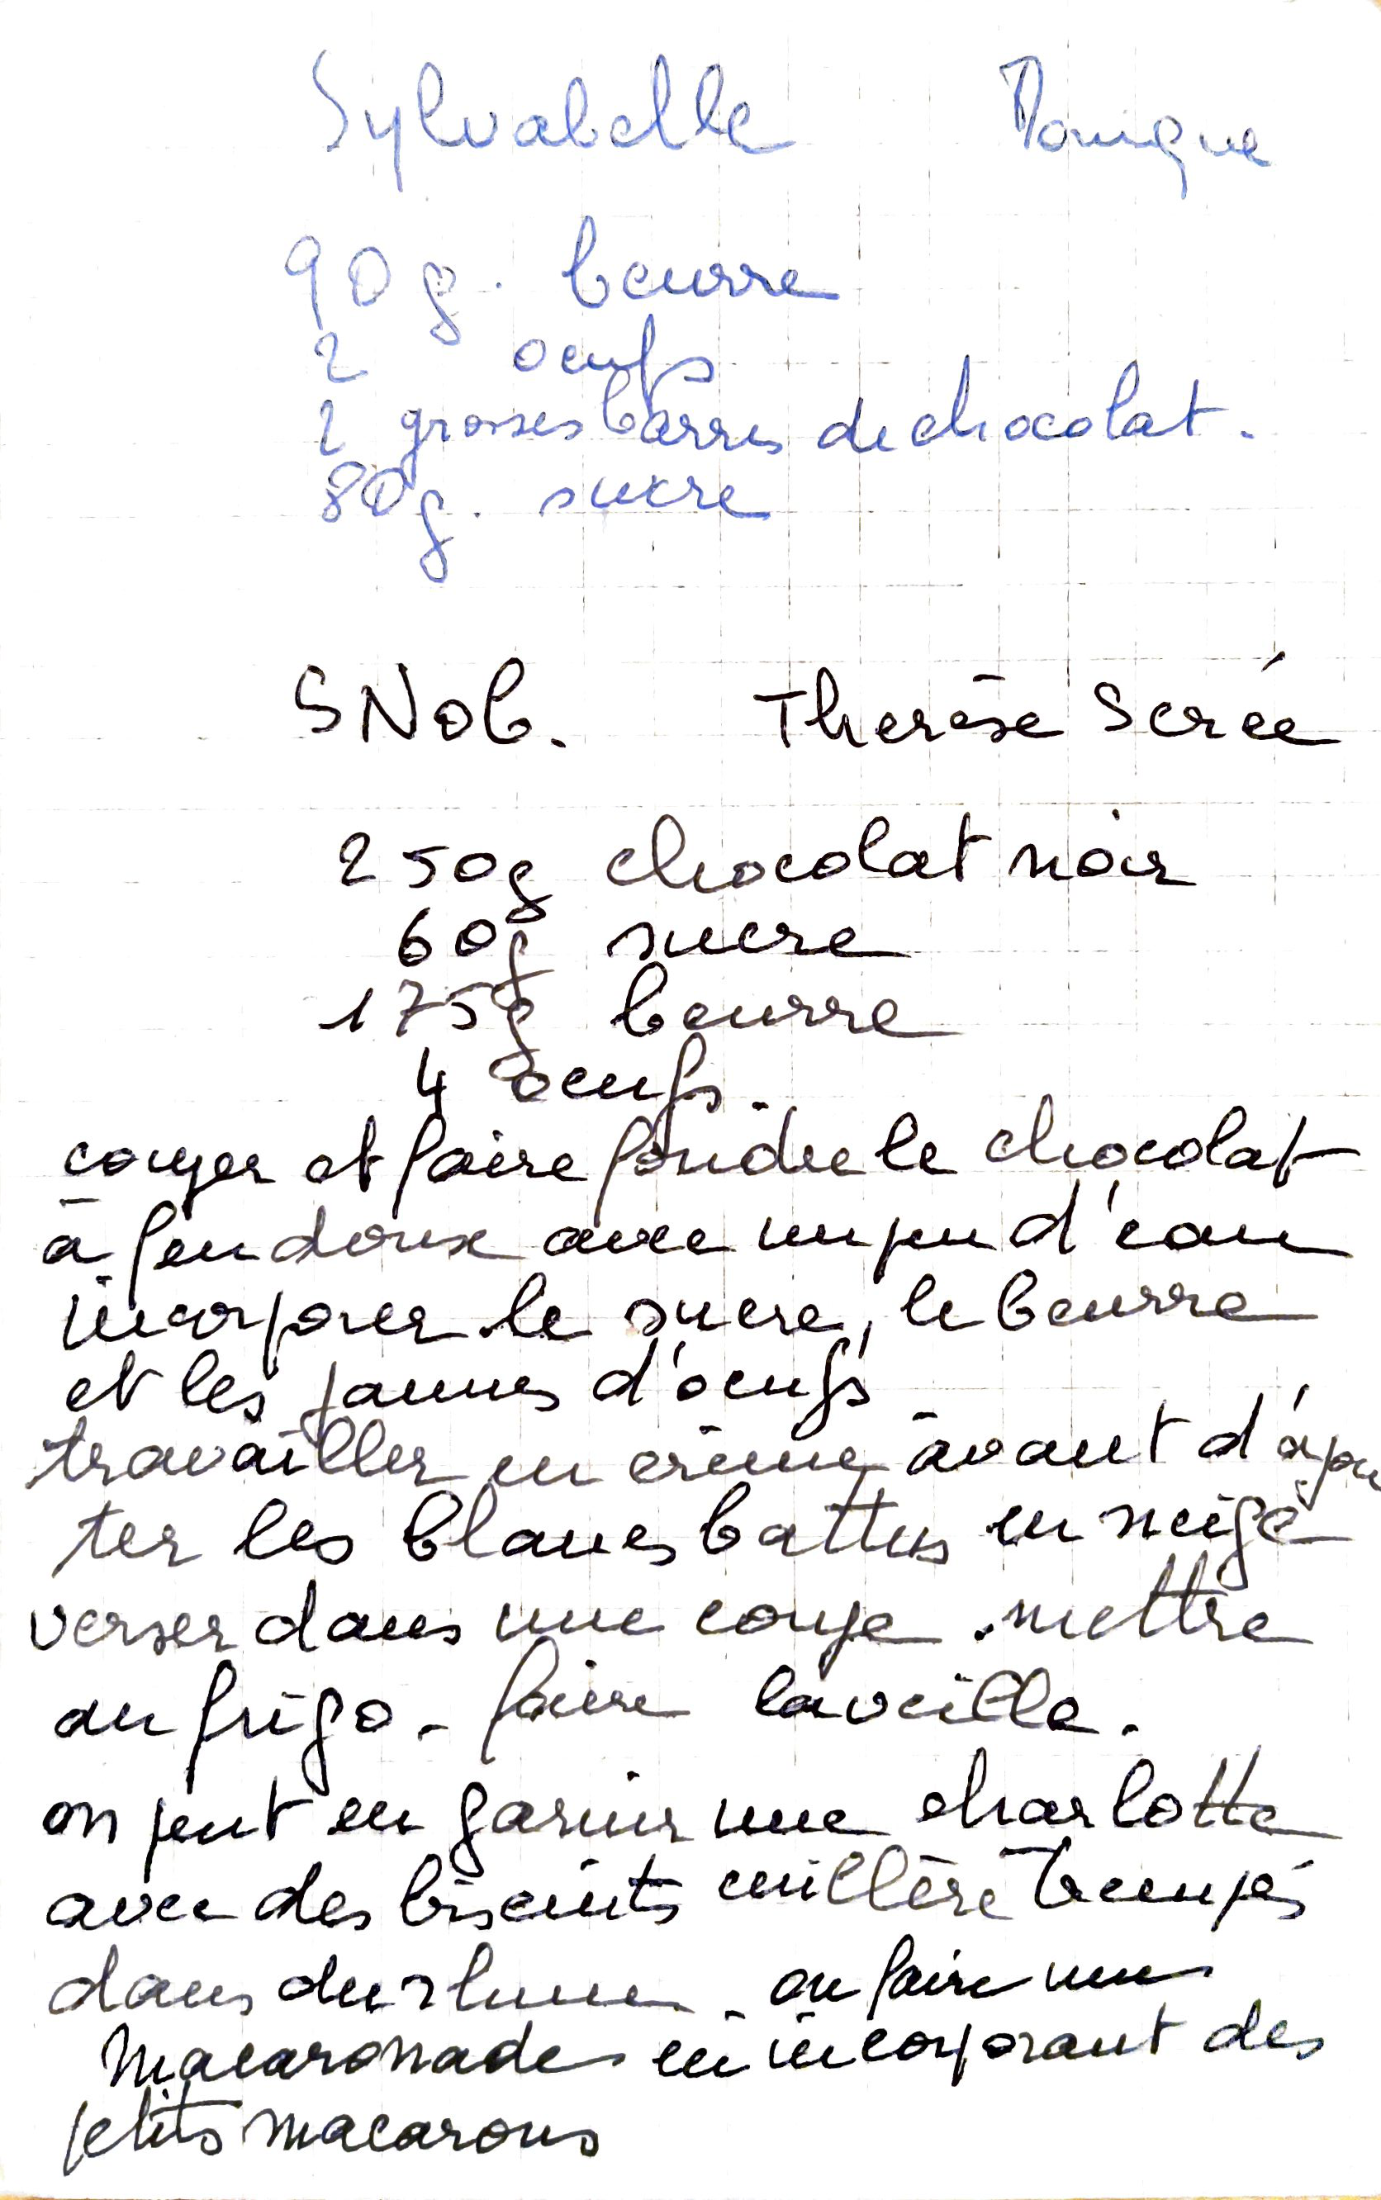 Sylvabelle Monique
90 g. beurre
2 oeufs
2 grosses barres de chocolat.
80g. sucre
SNob. Therèse Serée
250g chocolat noir
60g sucre
175g beurre
4 oeufs.
couper et faire fondre le chocolat
à feu doux avec un peu d'eau
incorporer le sucre, le beurre
et les jaunes d'oeufs
travailler en crème avant d'ajou
ter les blancs battus en neige
verser dans une coupe . mettre
au frigo - faire la veille.
on peut en garnir une charlotte
avec des biscuits cuillère trempés
dans du rhum - ou faire une
macaronade en incorporant des
petits macarons